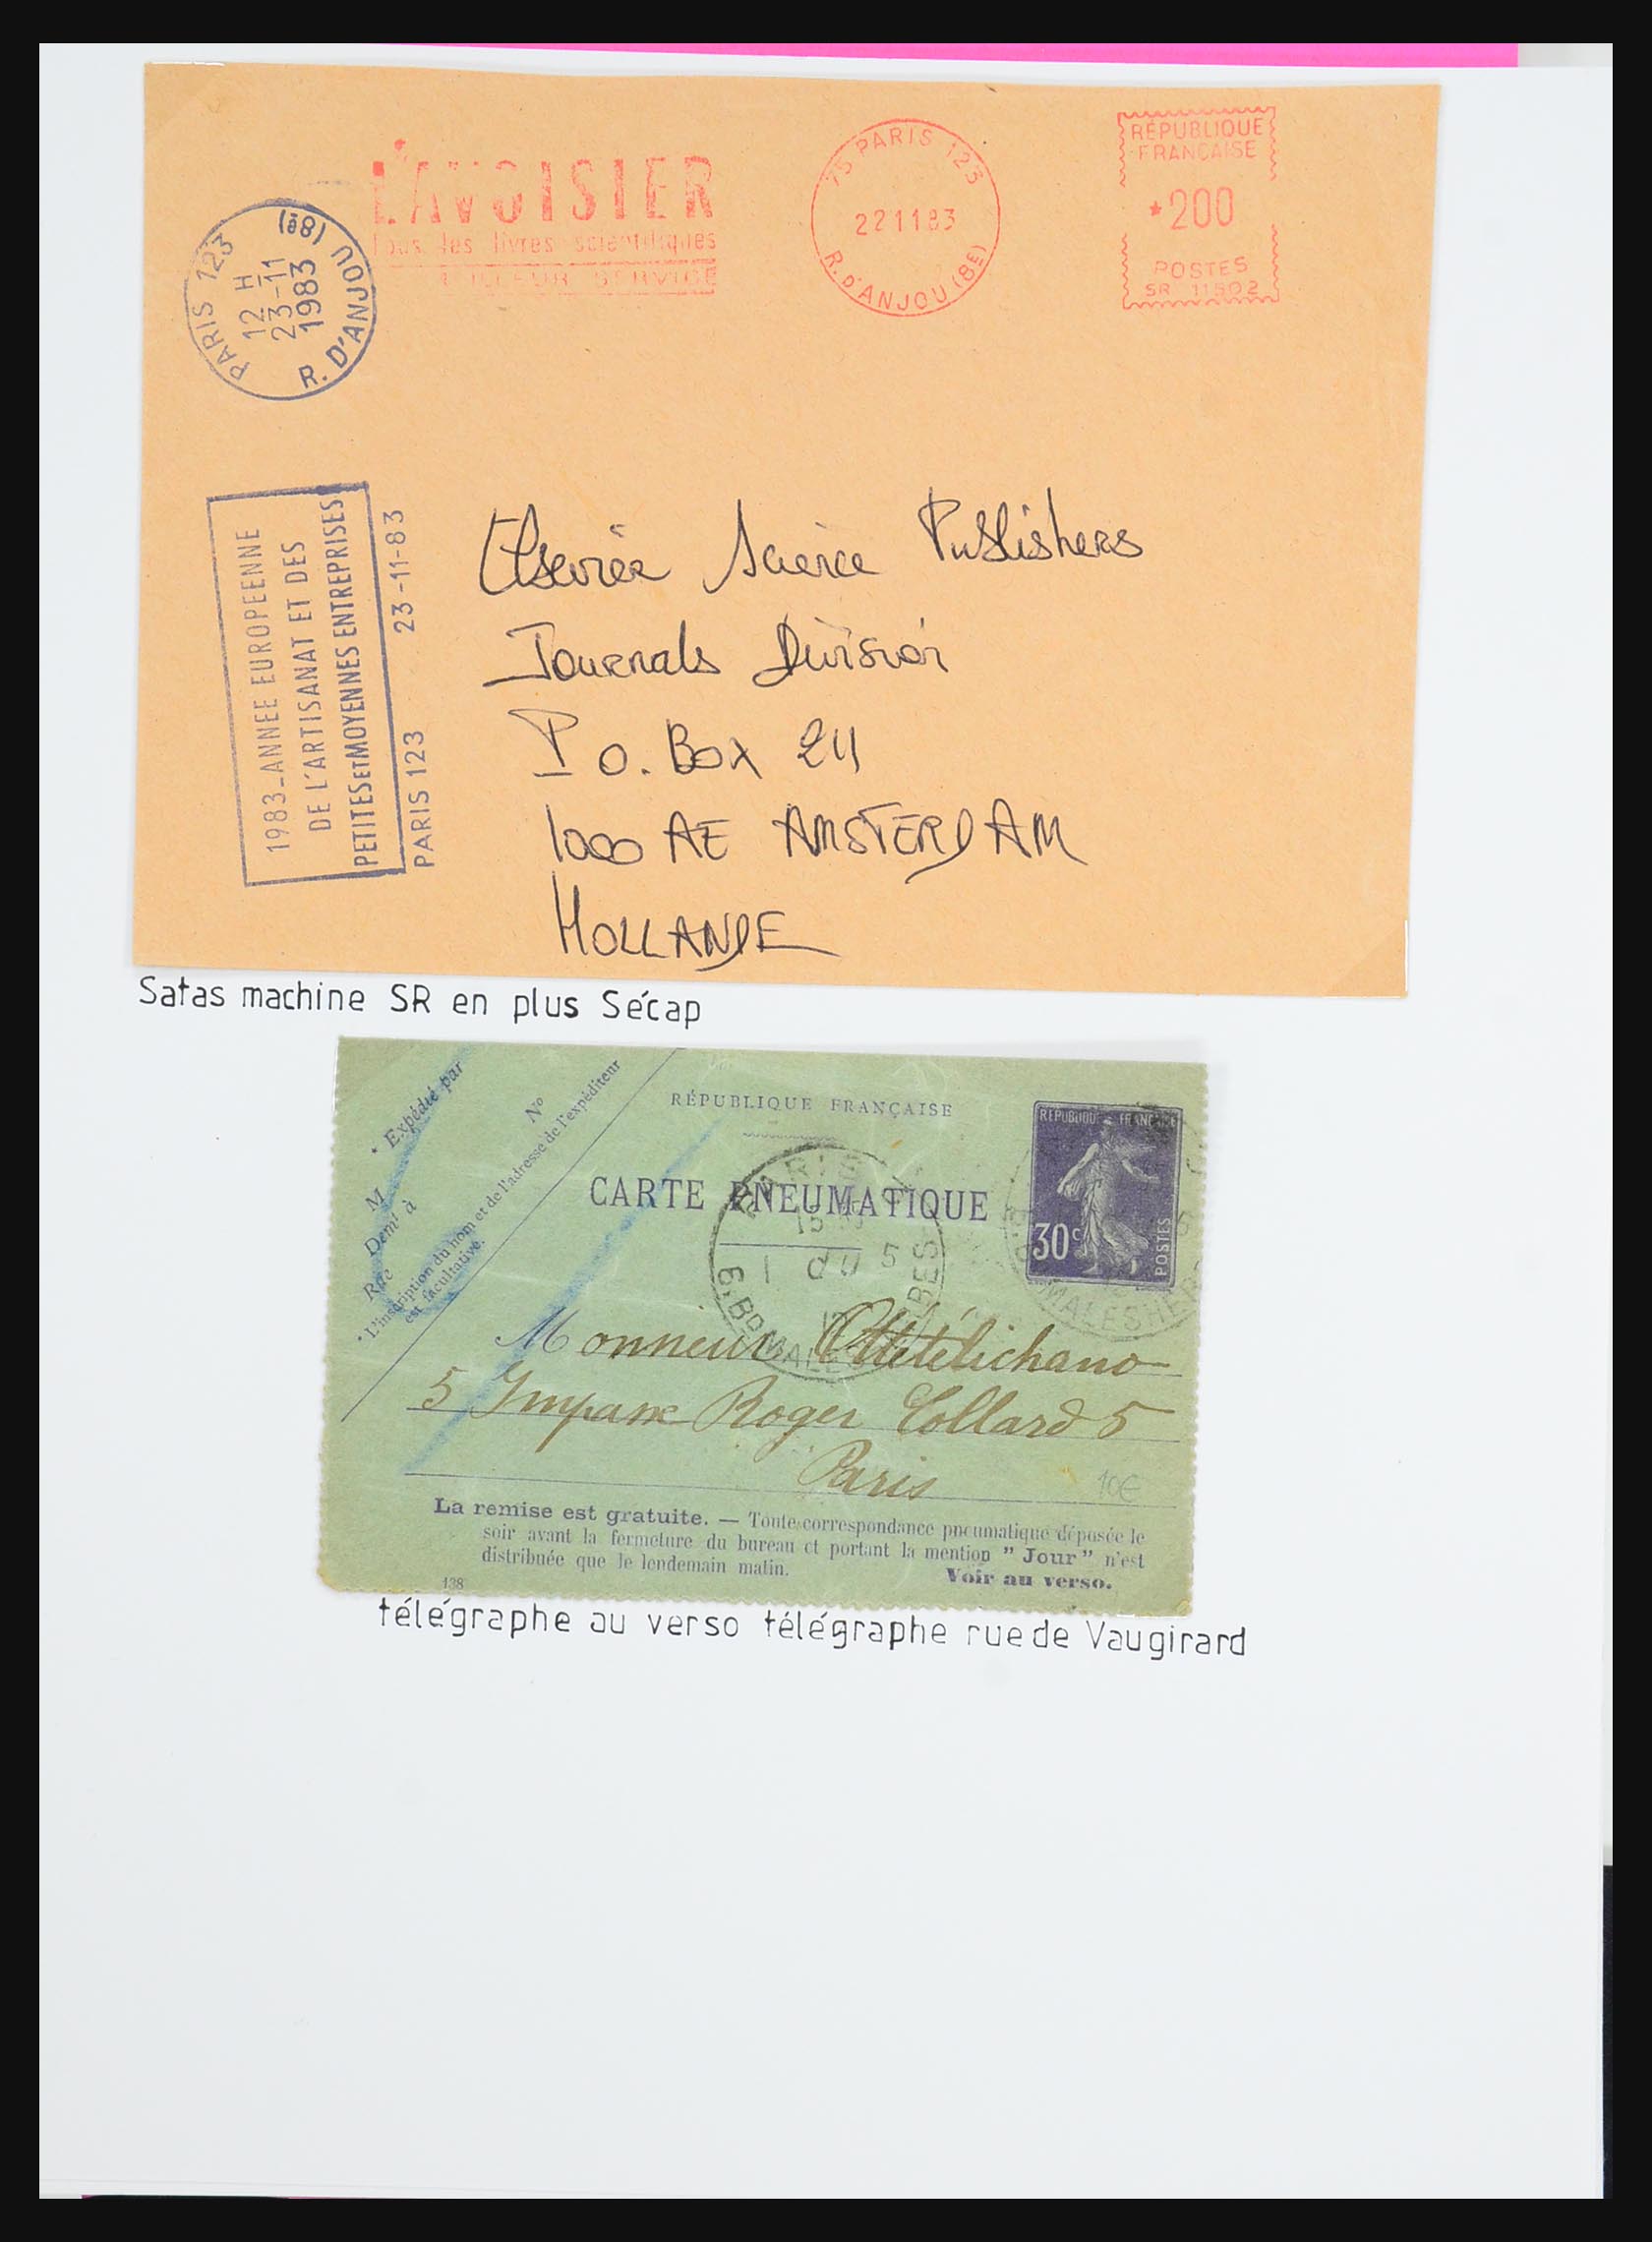 LAVOISIER
tous les livres scientifiques
SERVICE
75 PARIS 123
22 11 83
R. D'ANJOU (8E)
RÉPUBLIQUE
FRANÇAISE
*200
POSTES
SR 11502
PARIS 123
(8e)
12 H
23-11
1983
R. D'ANJOU
1983_ANNEE EUROPEENNE
DE L'ARTISANAT ET DES
PETITES ET MOYENNES ENTREPRISES
PARIS 123 23-11-83
Elsevier Science Publishers
Journals Division
P.O. Box 211
1000 AE AMSTERDAM
HOLLANDE
Satas machine SR en plus Sécap
Expédié par
M
Demt à
Rue
No
L'inscription du nom et de l'adresse de l'expéditeur
est facultative.
RÉPUBLIQUE FRANÇAISE
CARTE PNEUMATIQUE
REPUBLIQUE FRANÇAISE
30c
POSTES
PARIS
15
6, BD MALESHERBES
MALESHER
Monsieur
5 Impasse Roger Collard 5
Paris
10€
La remise est gratuite. — Toute correspondance pneumatique déposée le
soir avant la fermeture du bureau et portant la mention " Jour " n'est
distribuée que le lendemain matin.
Voir au verso.
138
télégraphe au verso télégraphe rue de Vaugirard